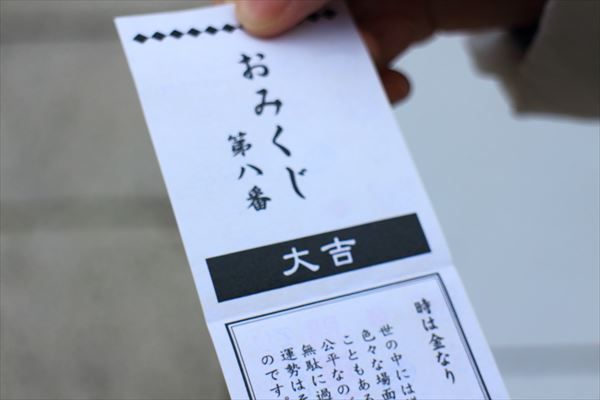 おみくじ
第八番
大吉
時は金なり
世の中には
色々な場面
こともある
公平なの
無駄に過
運勢はそ
のです。